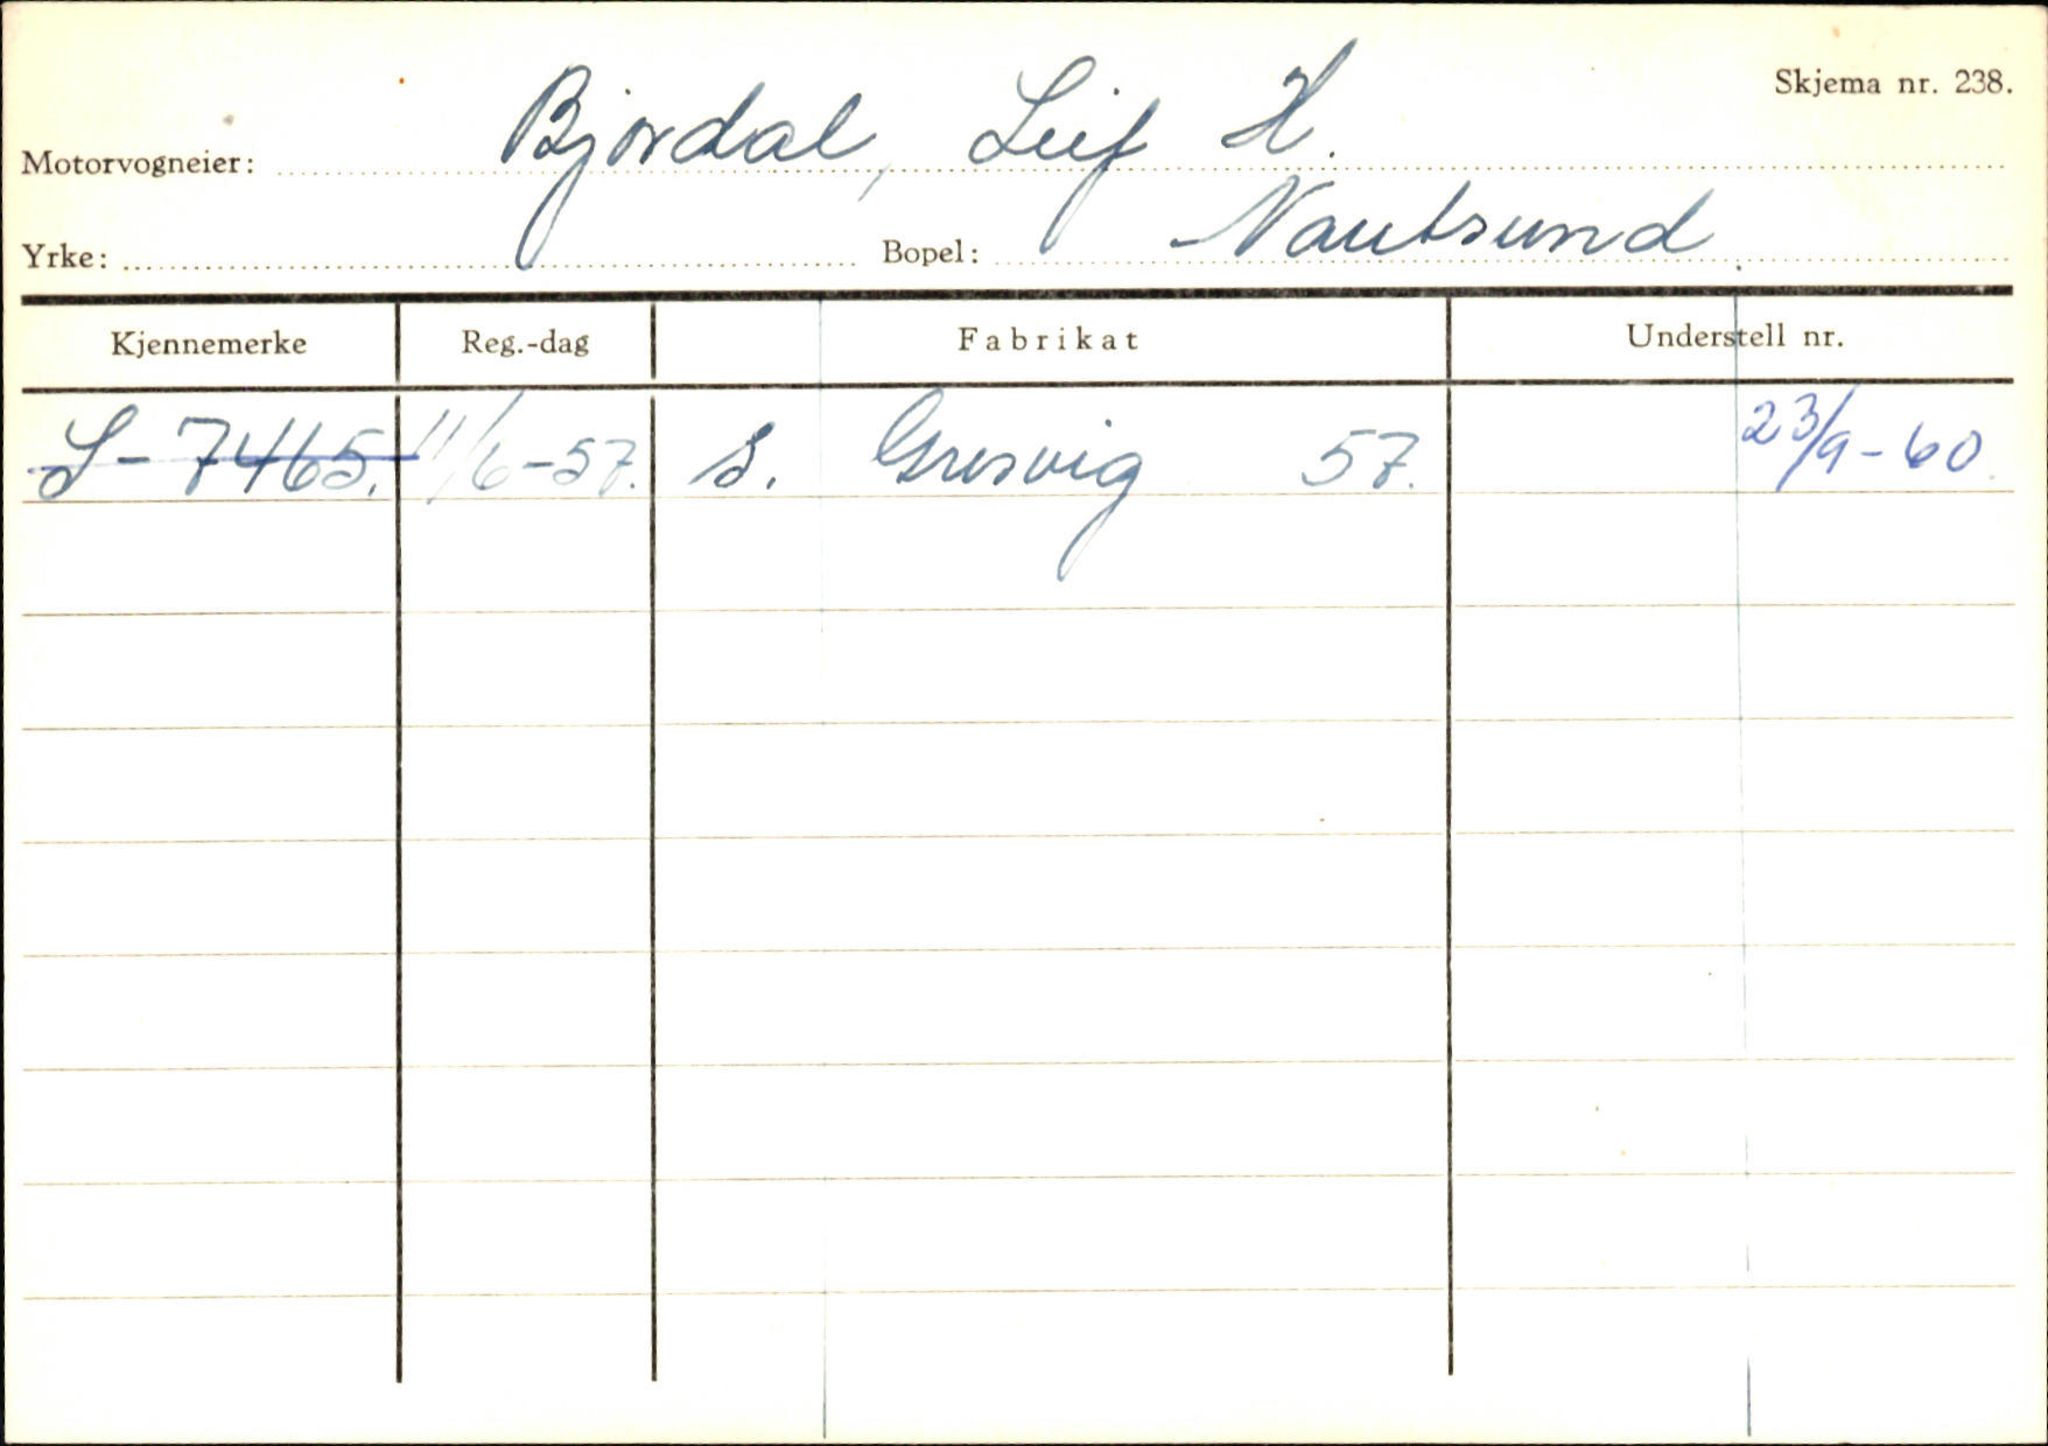 Skjema nr. 238.
Motorvogneier: Bjordal, Leif H.
Yrke: Bopel: Nautsund.
Kjennemerke Reg.-dag Fabrikat Understell nr.
S-7465. 11/6-57. s. Gresvig 57. 23/9-60.